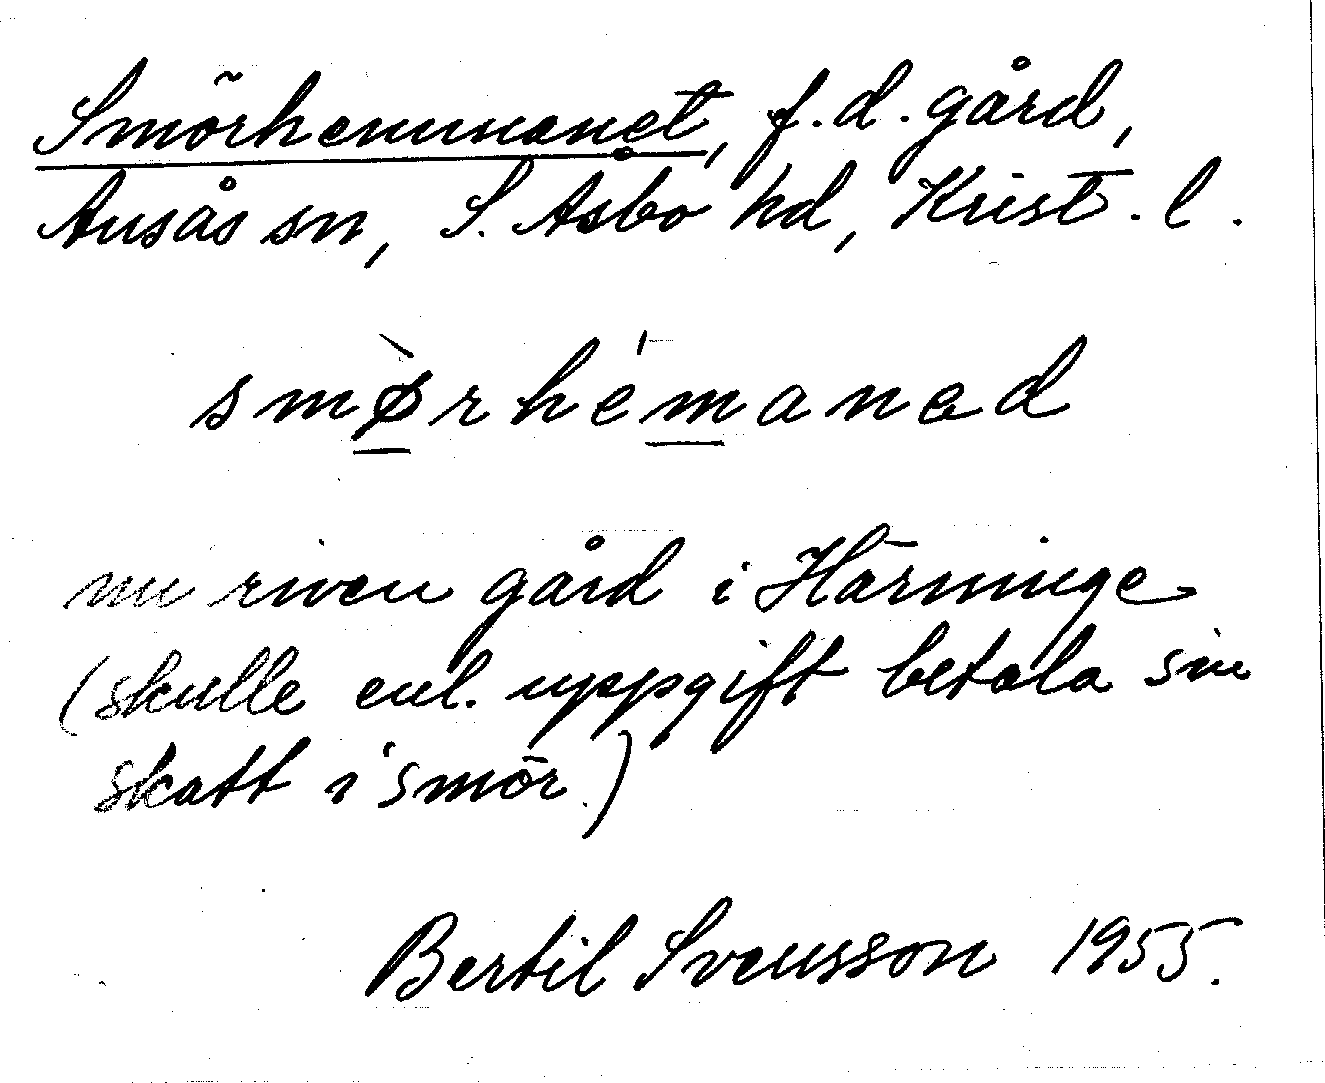 Smörhemmanet, f.d. gård,
Ausås sn, S. Åsbo hd, Krist. l.
smø̀rhémanəd
nu riven gård i Härninge
(skulle enl. uppgift betala sin
skatt i smör.)
Bertil Svensson 1955.